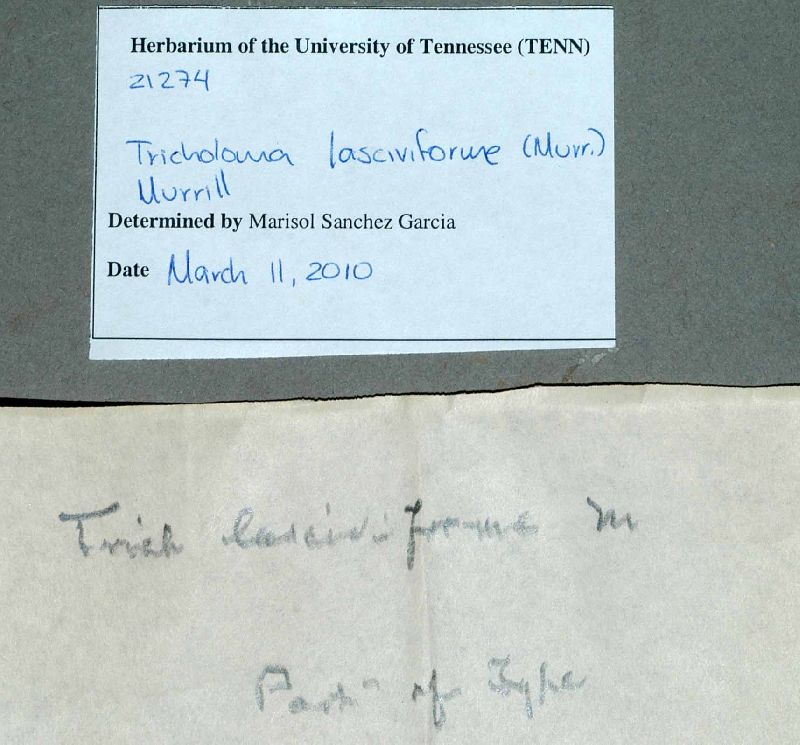 Herbarium of the University of Tennessee (TENN)
21274
Tricholoma lasciviforme (Murr.)
Murrill
Determined by Marisol Sanchez Garcia
Date March 11, 2010
Trich lasciviforme M
Part of Type